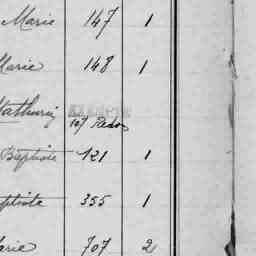 Marie 147 1
Marie 148 1
Mathurin
107 Redon
Baptiste 121 1
Baptiste 355 1
Marie 707 2